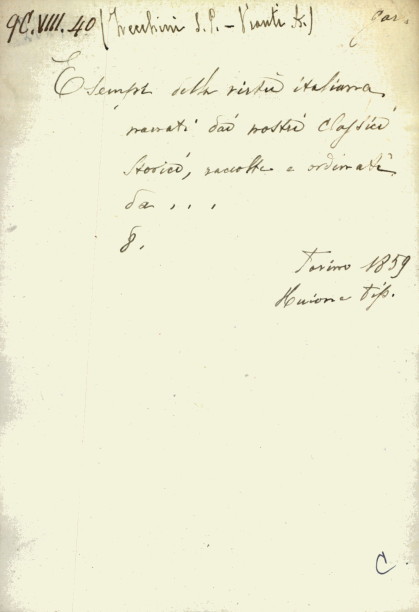 9C.VIII.40 (Zecchini S. P. - Vianti A.)
Esempi della virtù italiana
narrati dai nostri classici
storici, raccolti e ordinati
da . . .
8.
Torino 1859
tip.
C.